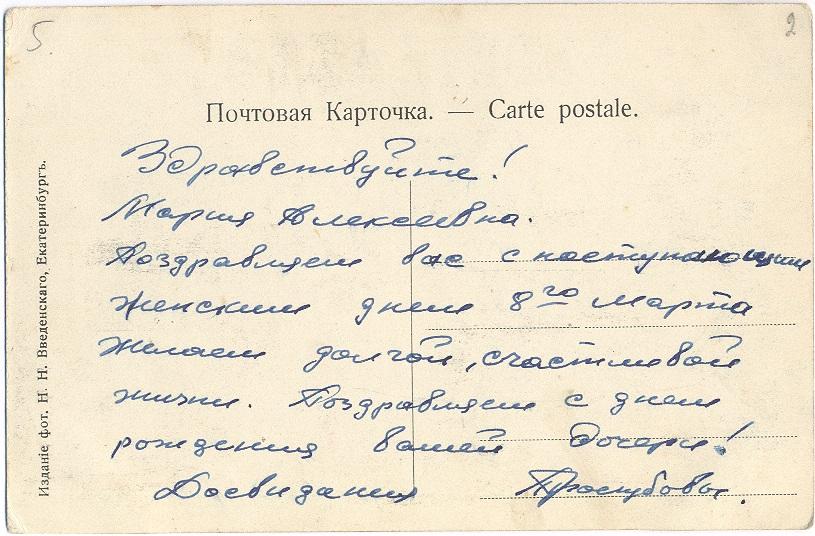 5.
2
Почтовая Карточка. — Carte postale.
Здравствуйте!
Мария Алексеевна.
Поздравляем вас с наступающим
женским днем 8го Марта
Желаем долгой, счастливой
жизни. Поздравляем с днем
рождения вашей дочери!
Досвидания
Изданіе фот. Н. Н. Введенскаго, Екатеринбургъ.